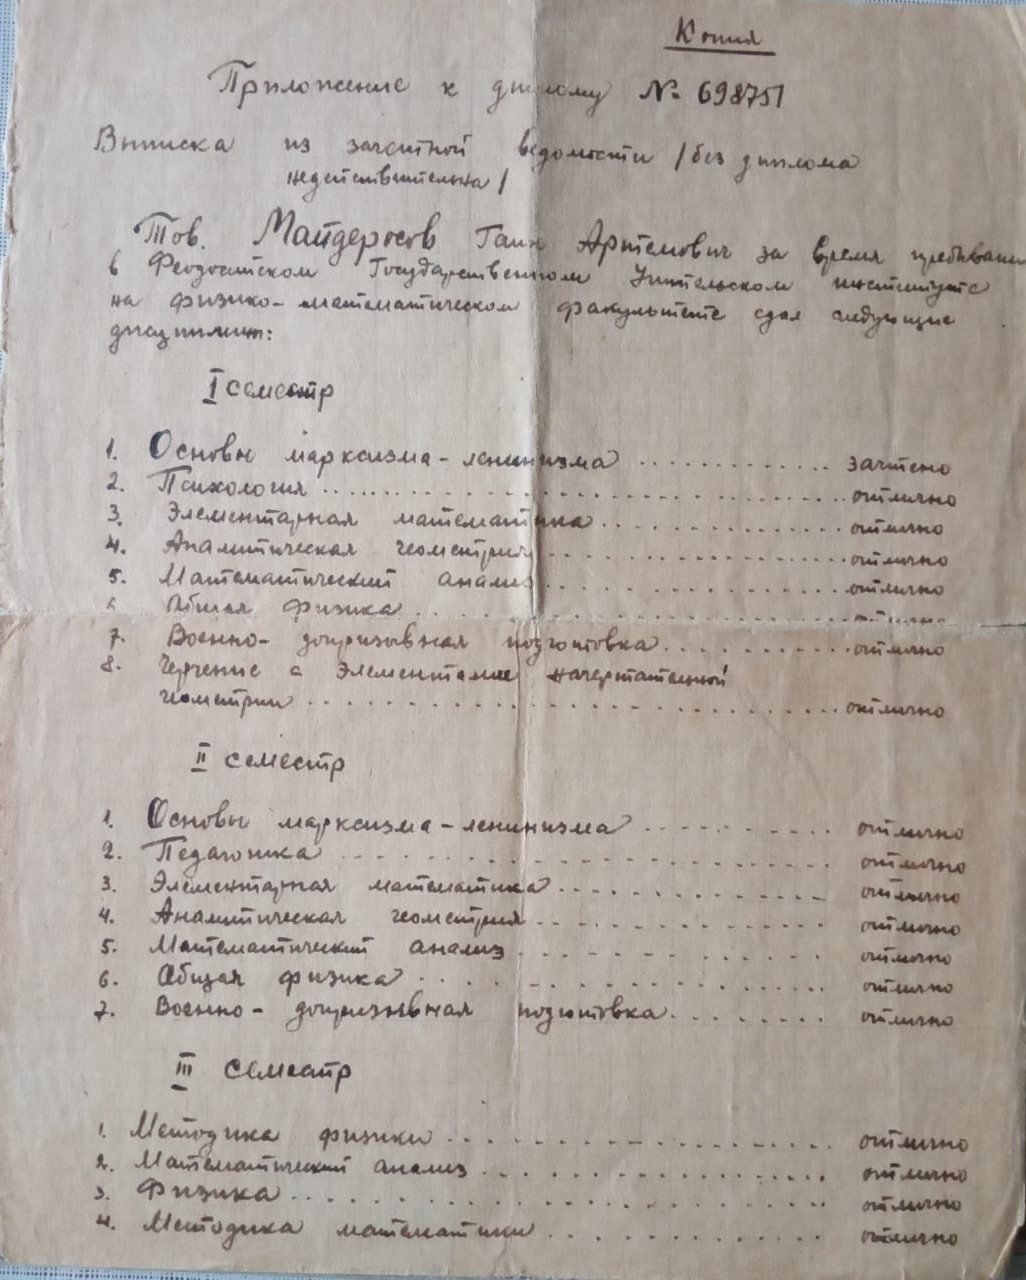 Копия
Приложение к диплому № 698751
Выписка из зачетной ведомости /без диплома
недействительна/
Тов. Майдеросов Гаик Артемович за время пребывани
в Феодосийском Государственном Учительском институте
на физико-математическом факультете сдал следующие
дисциплин:
I семестр
1. Основы марксизма-ленинизма ............. зачтено
2. Психология ............................. отлично
3. Элементарная математика ................ отлично
4. Аналитическая геометрия ................ отлично
5. Математический анализ .................. отлично
6 Общая физика ............................ отлично
7. Военно-допризывная подготовка .......... отлично
8. Черчение с Элементами начертательной
геометрии ................................. отлично
II семестр
1. Основы марксизма-ленинизма ............. отлично
2. Педагогика ............................. отлично
3. Элементарная математика ................ отлично
4. Аналитическая геометрия ................ отлично
5. Математический анализ .................. отлично
6. Общая физика ........................... отлично
7. Военно-допризывная подготовка .......... отлично
III семестр
1. Методика физики ........................ отлично
2. Математический анализ .................. отлично
3. Физика ................................. отлично
4. Методика математики .................... отлично